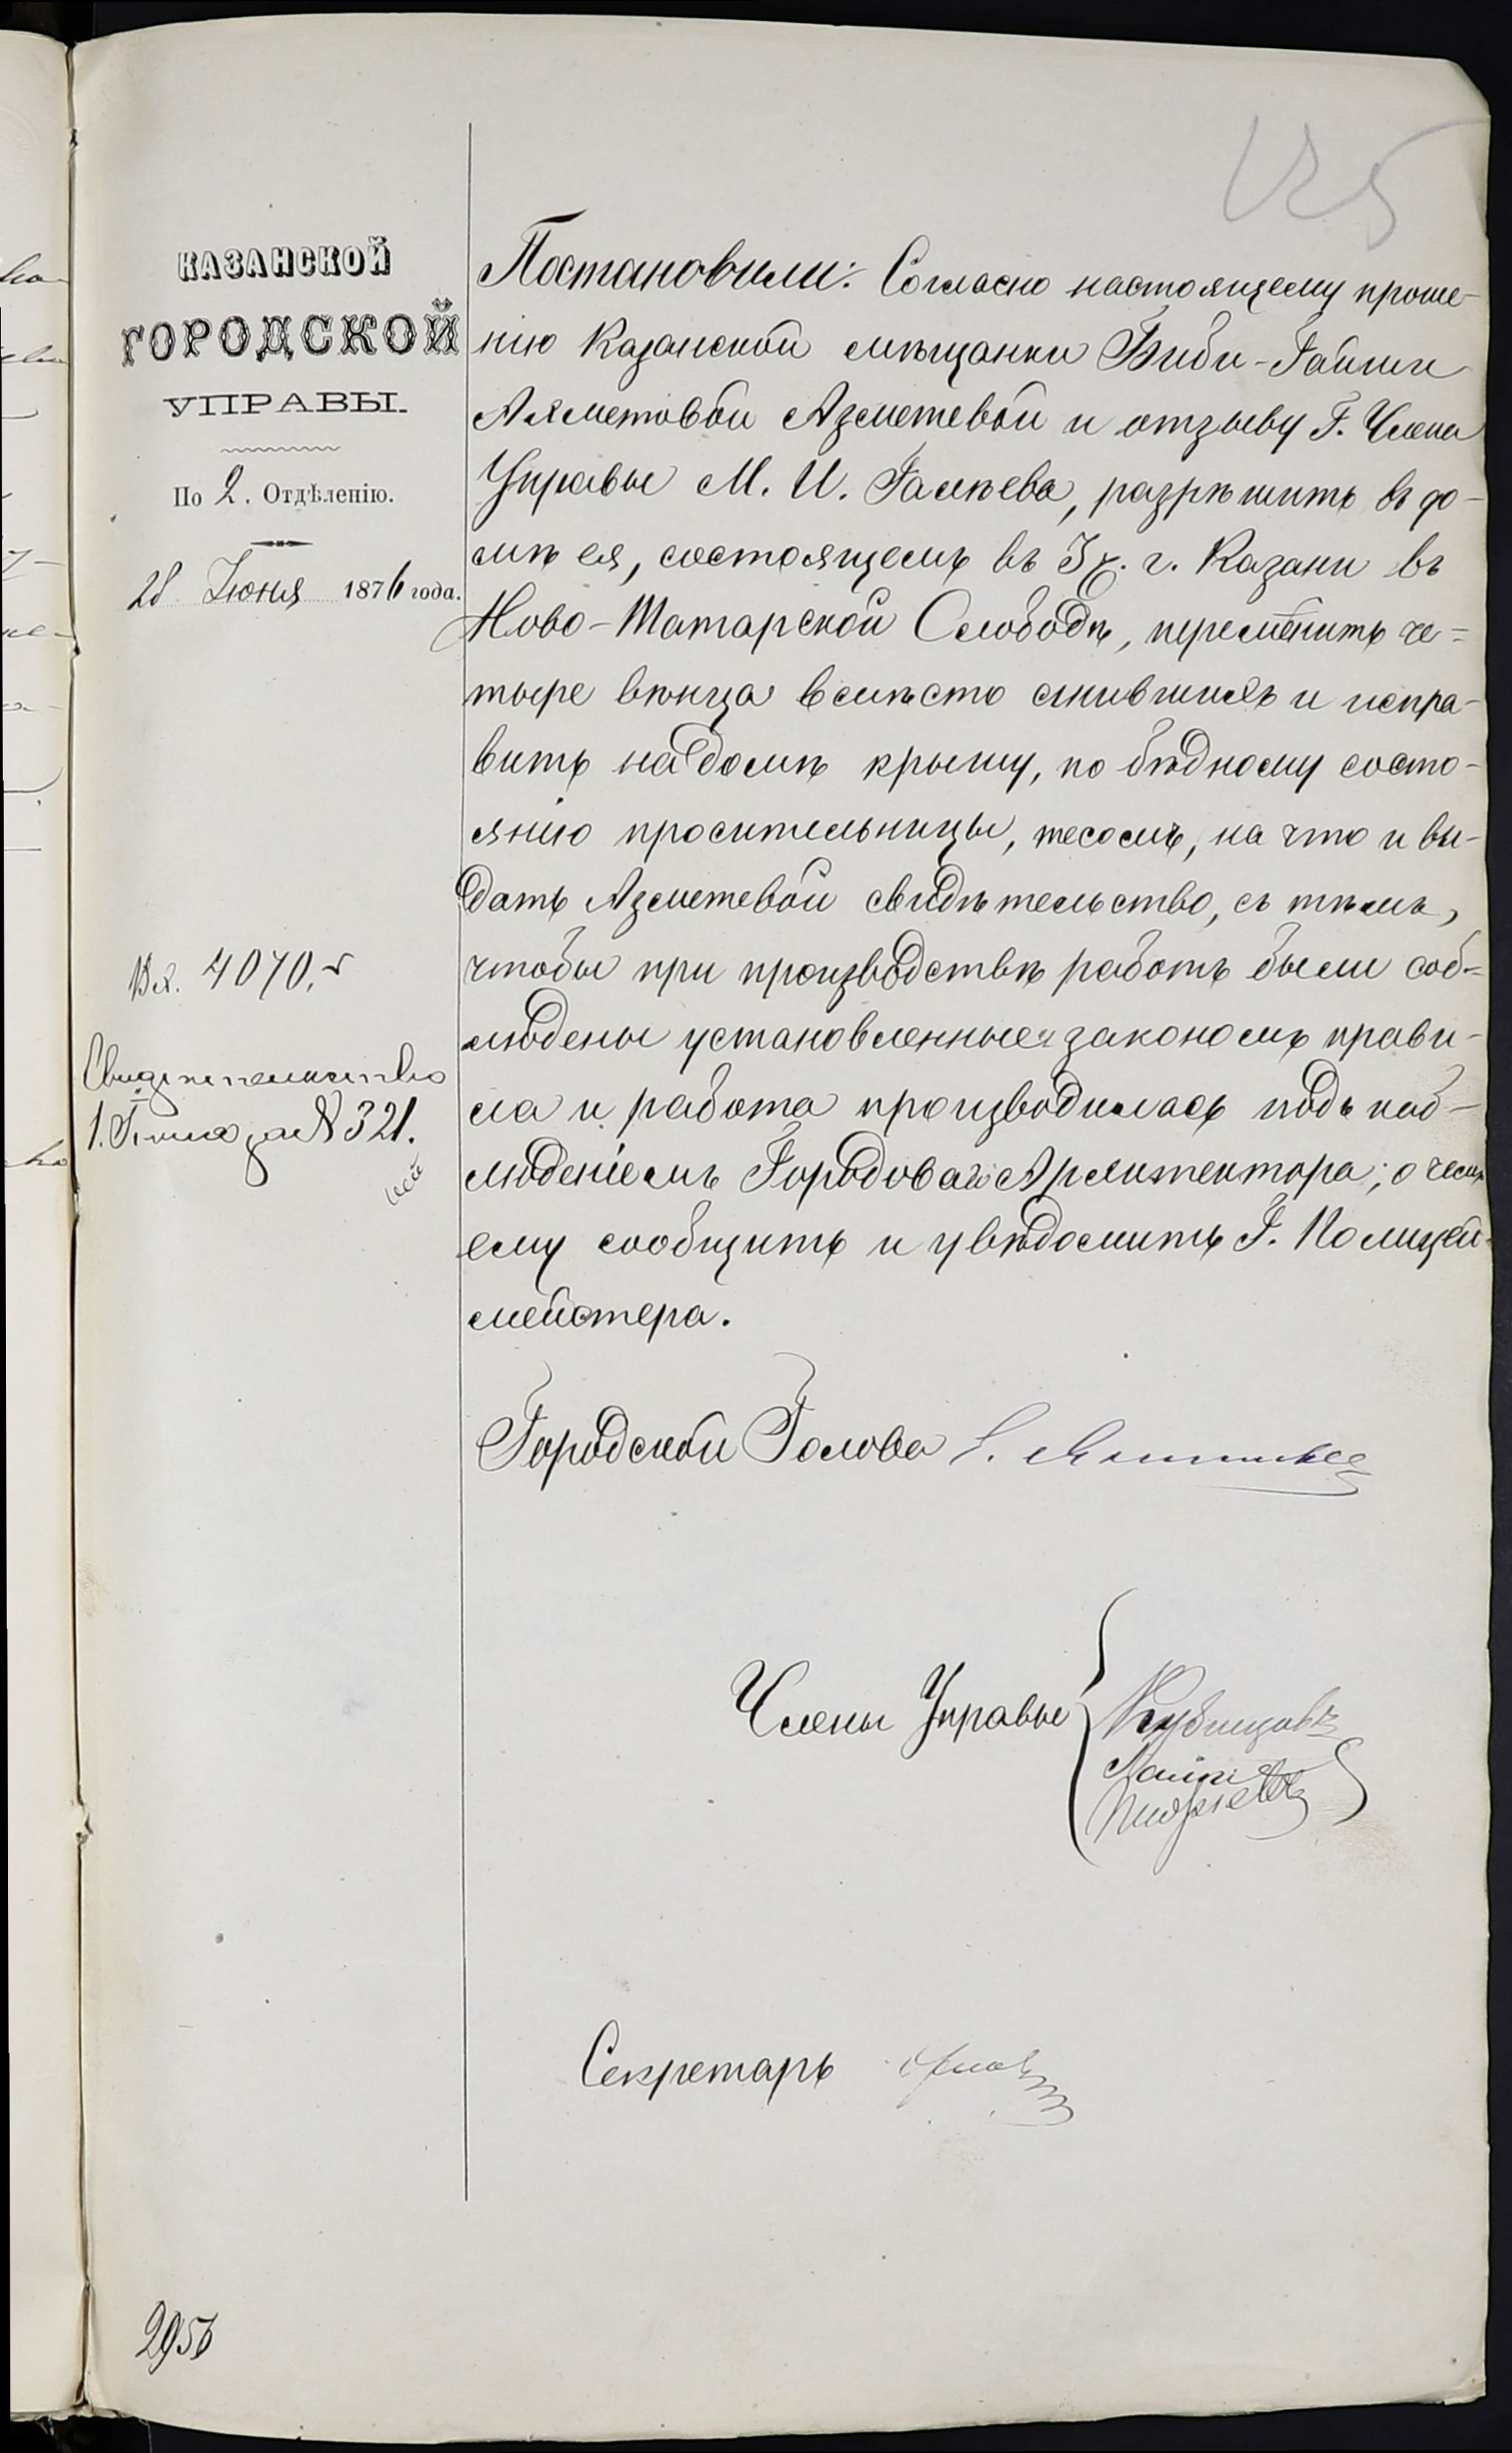 125
КАЗАНСКОЙ
ГОРОДСКОЙ
УПРАВЫ.
По 2. Отдѣленію.
28 Іюня 1876 года.
Вх. 4070.
Свидетельство
1. Іюля за № 321.
Постановили: Согласно настоящему проше-
нію Казанской мѣщанки Биби-
Ахметовой Азметевой и отзыву Г. Члена
Управы М. И. Галѣева, разрѣшить въ до-
мѣ ея, состоящемъ въ 3 ч. г. Казани въ
Ново-Татарской Слободѣ, перемѣнить че-
тыре вѣнца вмѣсто сгнившихъ и испра-
вить на домѣ крышу, по бѣдному состо-
янію просительницы, тесомъ, на что и вы-
дать Азметевой свидѣтельство, съ тѣмъ,
чтобы при производствѣ работъ были соб-
людены установленные закономъ прави-
ла и работа производилась подъ наб-
людениемъ Городоваго Архитектора; о чемъ
ему сообщить и увѣдомить Г. Полицей-
мейстера.
Городской Голова
Члены Управы
Секретарь
2956